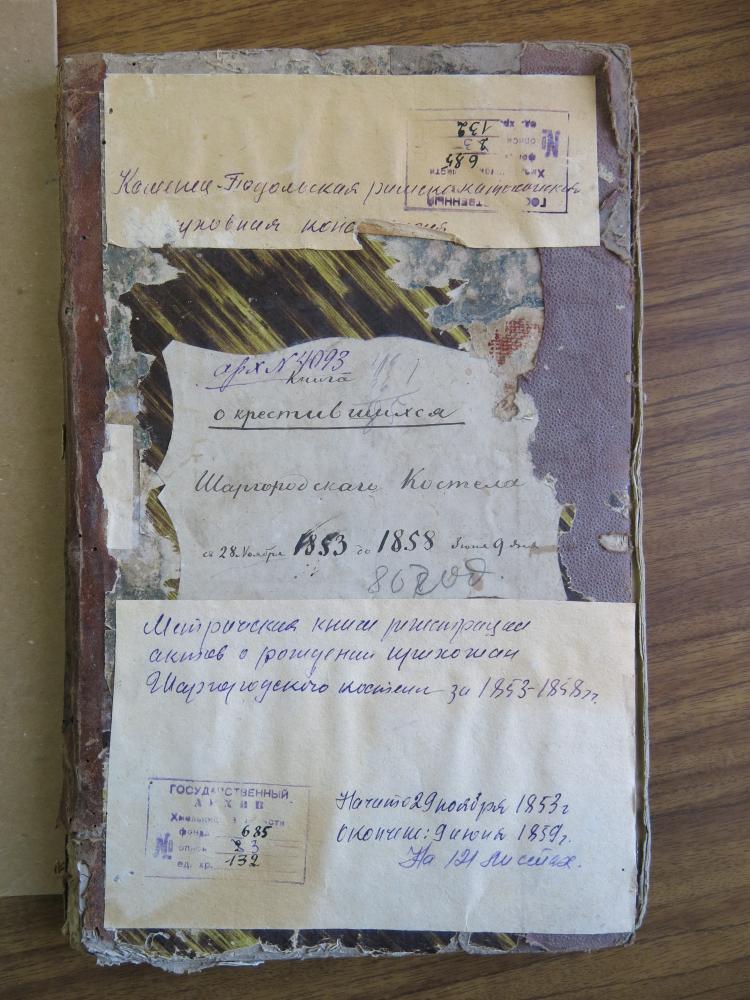 ГОСУДАРСТВЕННЫЙ
№
685
23
132
ед. хр.
Каменец-Подольская римско-католическая
духовная консистория
арх N 4093
Книга
о крестившихся
Шаргородскаго Костела
съ 28 Ноября 1853 до 1858 Іюня 9 дня
Метрическая книга регистрации
актов о рождении прихожан
Шаргородского костела за 1853-1858 гг.
ГОСУДАРСТВЕННЫЙ
АРХИВ
Хмельницкой области
фонд 685
№ описи 23
ед. хр. 132
Начато 29 ноября 1853 г
Окончен: 9 июня 1859 г.
На 121 листах.